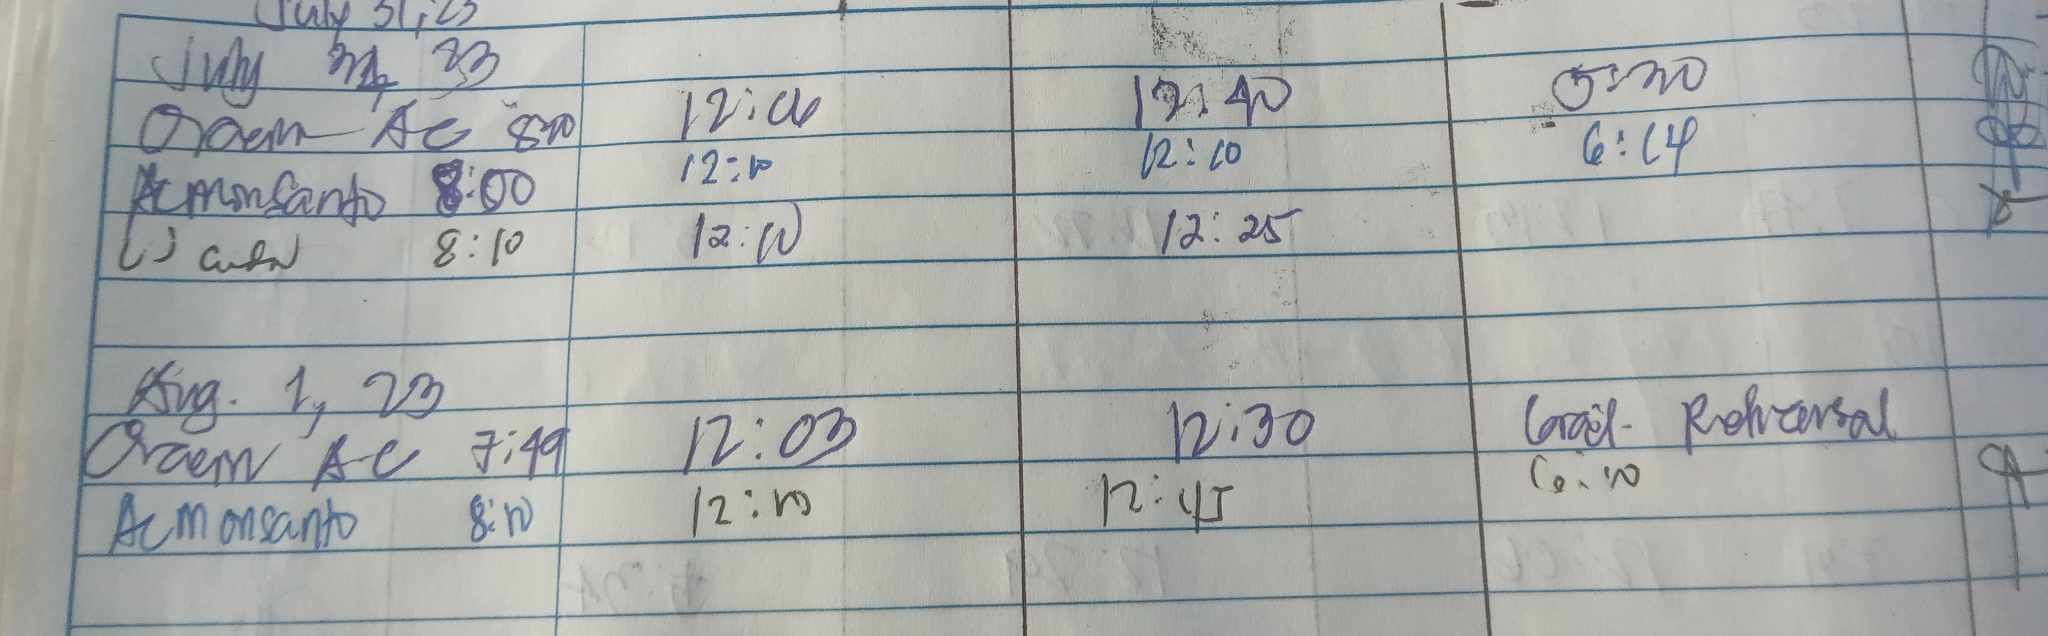 July 31, 23
July 31, 23
Oraem AC 8:10 12:06 12:40 5:30
Acmonsanto 8:00 12:10 12:10 6:14
8:10 12:10 12:25
Aug. 1, 23
Oraem A-C 7:49 12:03 12:30 Rehearsal
Acmonsanto 8:10 12:10 12:45 6:10